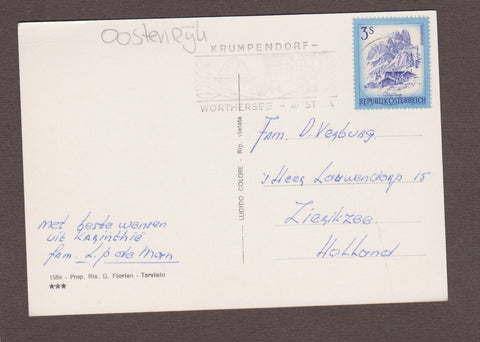 Oostenrijk
KRUMPENDORF -
WÖRTHERSEE - AUSTRIA
3S
REPUBLIK ÖSTERREICH
Fam. D. Verburg
Heer Lauwendorp 15
Zierikzee
Holland
LUCIDO COLORE - Rip. vietata
met beste wensen
uit Karinthië
fam. L.P de Marn
158x - Prop. Ris. G. Florian - Tarvisio
★★★